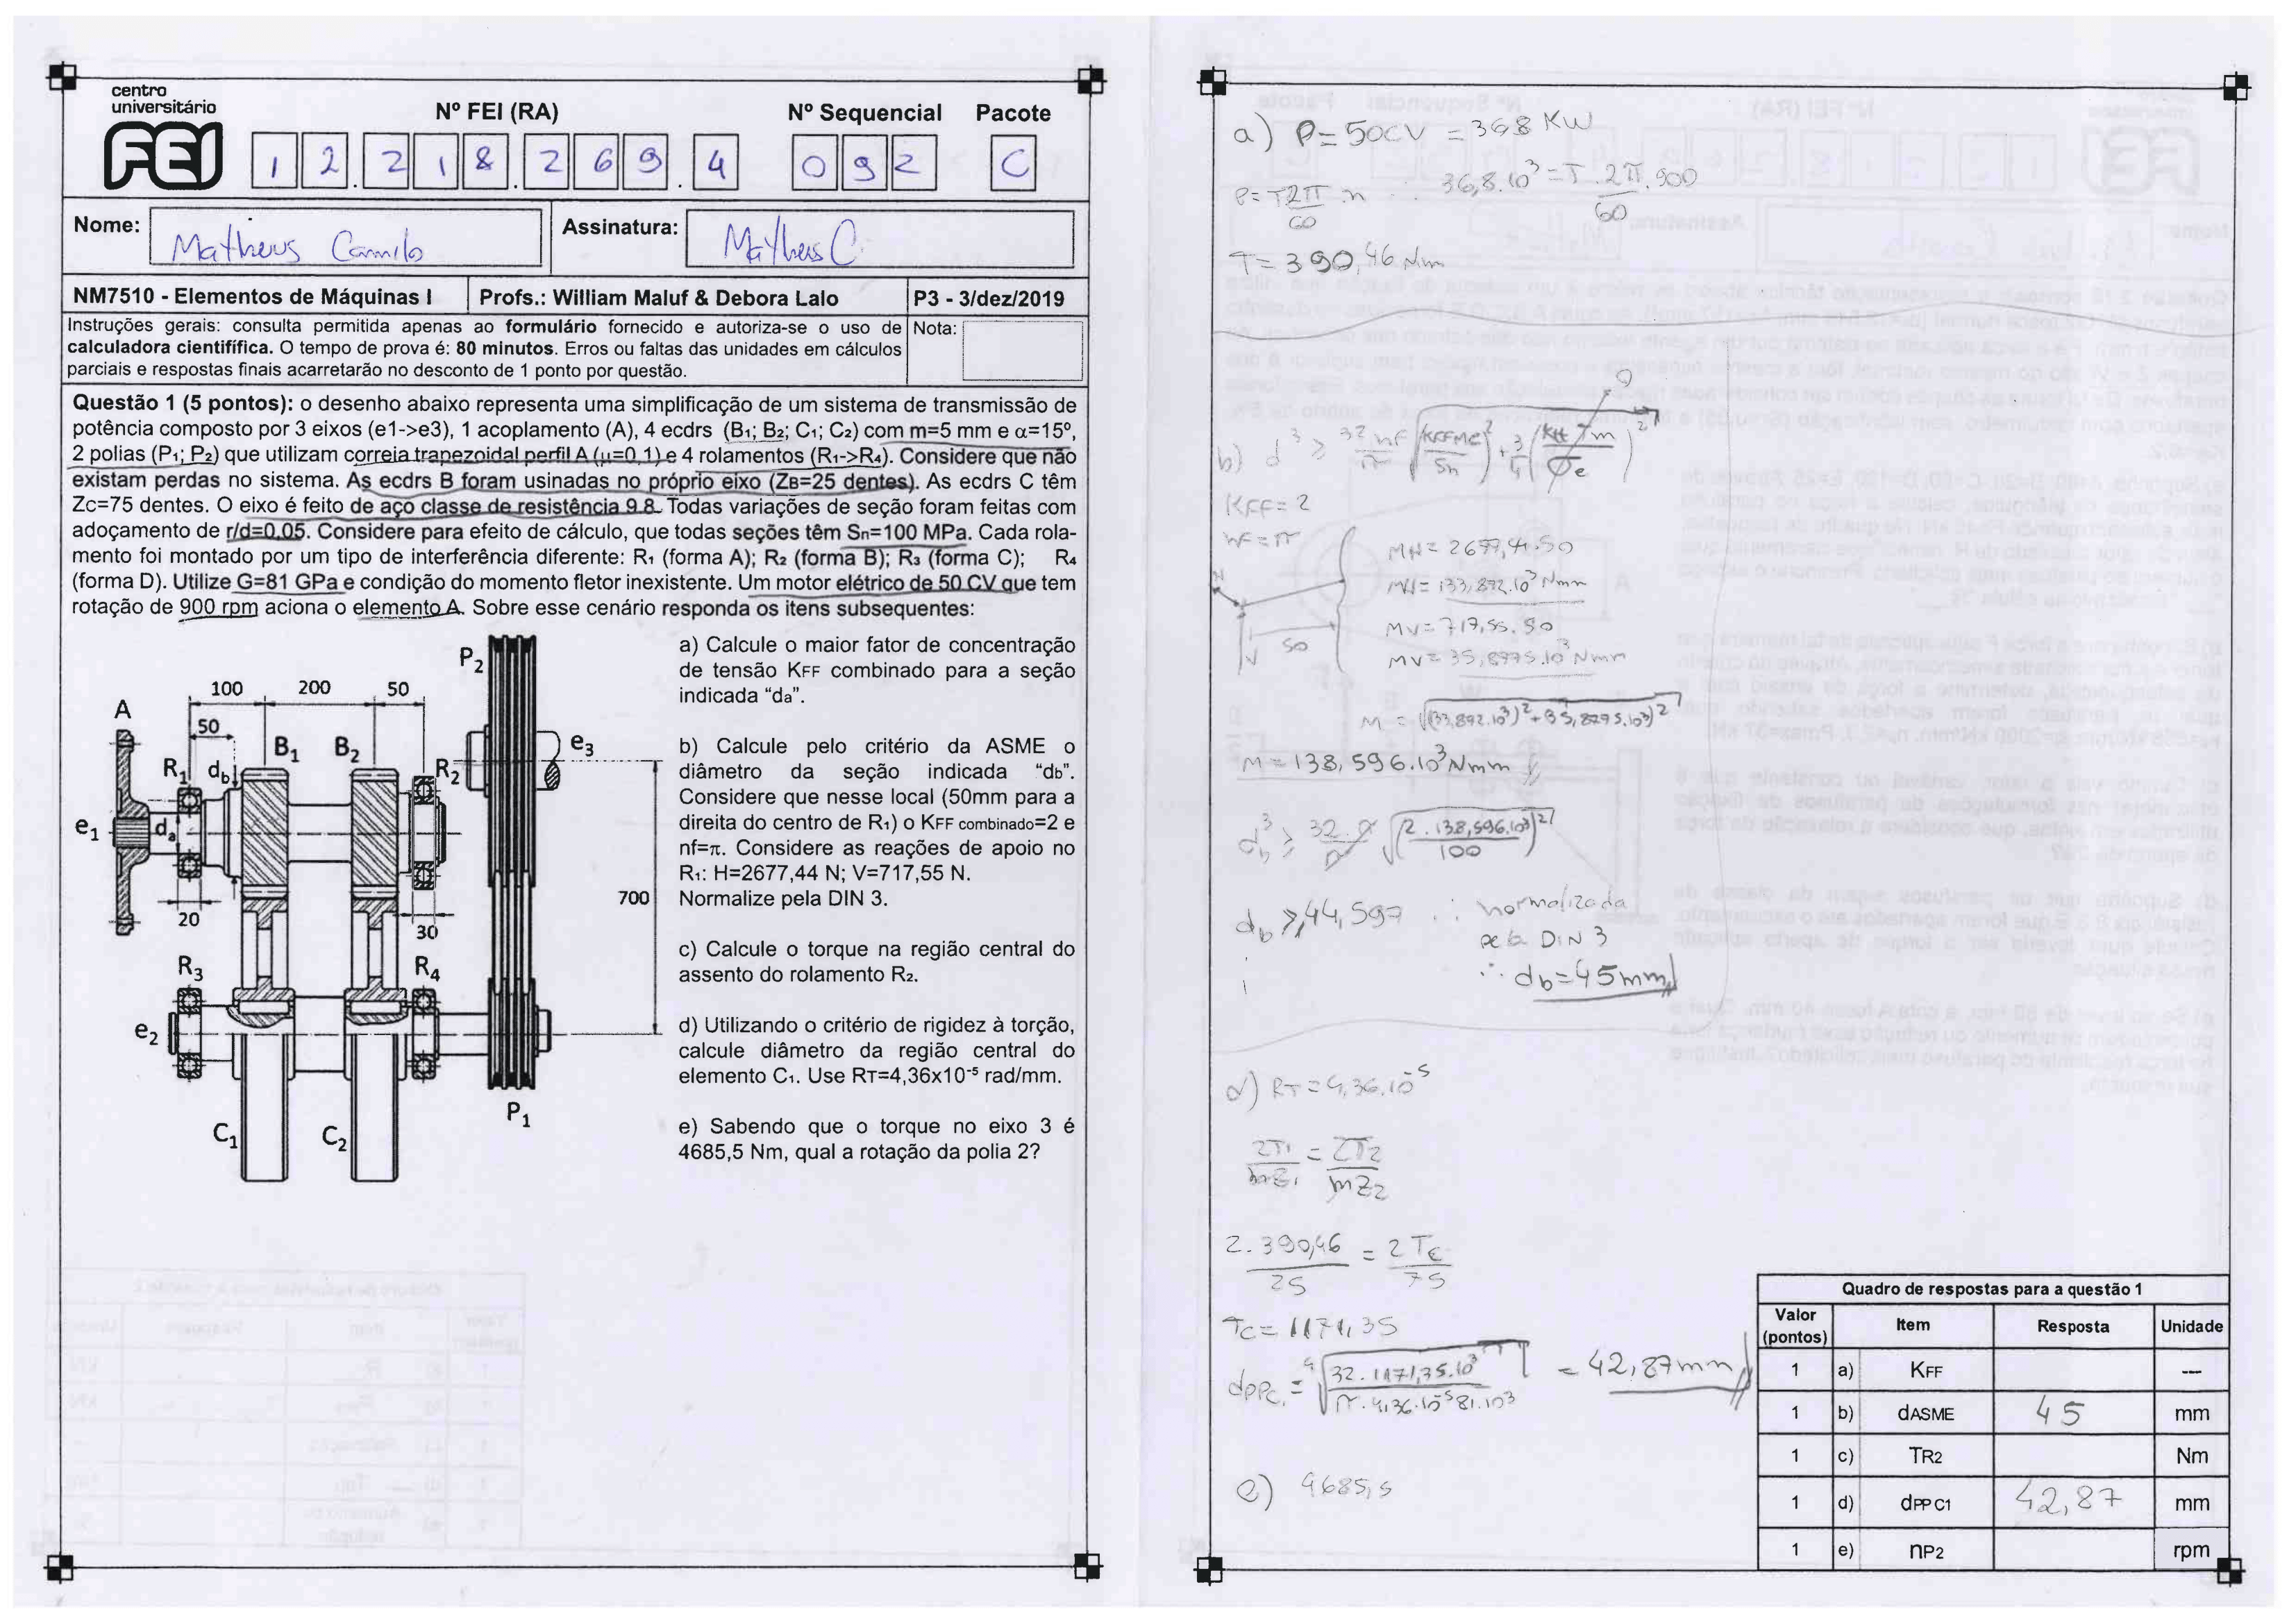 centro
universitário
FEI
Nº FEI (RA)
Nº Sequencial
Pacote
1 2 . 2 1 8 . 2 6 9 . 4
0 9 2
C
Nome:
Matheus Camilo
Assinatura:
Matheus C.
NM7510 - Elementos de Máquinas I
Profs.: William Maluf & Debora Lalo
P3 - 3/dez/2019
Instruções gerais: consulta permitida apenas ao formulário fornecido e autoriza-se o uso de
calculadora científífica. O tempo de prova é: 80 minutos. Erros ou faltas das unidades em cálculos
parciais e respostas finais acarretarão no desconto de 1 ponto por questão.
Nota:
Questão 1 (5 pontos): o desenho abaixo representa uma simplificação de um sistema de transmissão de
potência composto por 3 eixos (e1->e3), 1 acoplamento (A), 4 ecdrs (B1; B2; C1; C2) com m=5 mm e α=15º,
2 polias (P1; P2) que utilizam correia trapezoidal perfil A (µ=0,1) e 4 rolamentos (R1->R4). Considere que não
existam perdas no sistema. As ecdrs B foram usinadas no próprio eixo (ZB=25 dentes). As ecdrs C têm
Zc=75 dentes. O eixo é feito de aço classe de resistência 9.8. Todas variações de seção foram feitas com
adoçamento de r/d=0,05. Considere para efeito de cálculo, que todas seções têm Sn=100 MPa. Cada rola-
mento foi montado por um tipo de interferência diferente: R1 (forma A); R2 (forma B); R3 (forma C); R4
(forma D). Utilize G=81 GPa e condição do momento fletor inexistente. Um motor elétrico de 50 CV que tem
rotação de 900 rpm aciona o elemento A. Sobre esse cenário responda os itens subsequentes:
P2
100 200 50
A
50
B1 B2
e3
R1 db R2
e1 da
20
30
700
R3 R4
e2
P1
C1 C2
a) Calcule o maior fator de concentração
de tensão KFF combinado para a seção
indicada "da".
b) Calcule pelo critério da ASME o
diâmetro da seção indicada "db".
Considere que nesse local (50mm para a
direita do centro de R1) o KFF combinado=2 e
nf=π. Considere as reações de apoio no
R1: H=2677,44 N; V=717,55 N.
Normalize pela DIN 3.
c) Calcule o torque na região central do
assento do rolamento R2.
d) Utilizando o critério de rigidez à torção,
calcule diâmetro da região central do
elemento C1. Use RT=4,36x10⁻⁵ rad/mm.
e) Sabendo que o torque no eixo 3 é
4685,5 Nm, qual a rotação da polia 2?
a) P=50CV = 36,8 KW
P=T2π/60 .n ∴ 36,8.10³=T.2π.900/60
T=390,46 Nm
0
b) d³ ≥ 32 nf/π √(KFFMe/Sn)² + 3/4 (Kft Tm/σe)²
KFF=2
nf=π
MH= 2677,4.50
MH= 133,872.10³ Nmm
MV= 717,55.50
MV= 35,8775.10³ Nmm
50
M= √(133,892.10³)²+(35,8775.10³)²
M=138,596.10³ Nmm
db³ ≥ 32.π/π √(2.138,596.10³/100)²
db ≥ 44,597 ∴ normalizada
pela DIN 3
∴ db=45mm
d) RT=4,36.10⁻⁵
2T1/mZ1 = 2T2/mZ2
2.390,46/25 = 2Tc/75
Tc= 1171,35
dPPc1 = ⁴√32.1171,35.10³/π.4,36.10⁻⁵81.10³ = 42,87mm
e) 4685,5
Quadro de respostas para a questão 1
Valor (pontos) Item Resposta Unidade
1 a) KFF ---
1 b) dASME 45 mm
1 c) TR2 Nm
1 d) dPP C1 42,87 mm
1 e) nP2 rpm